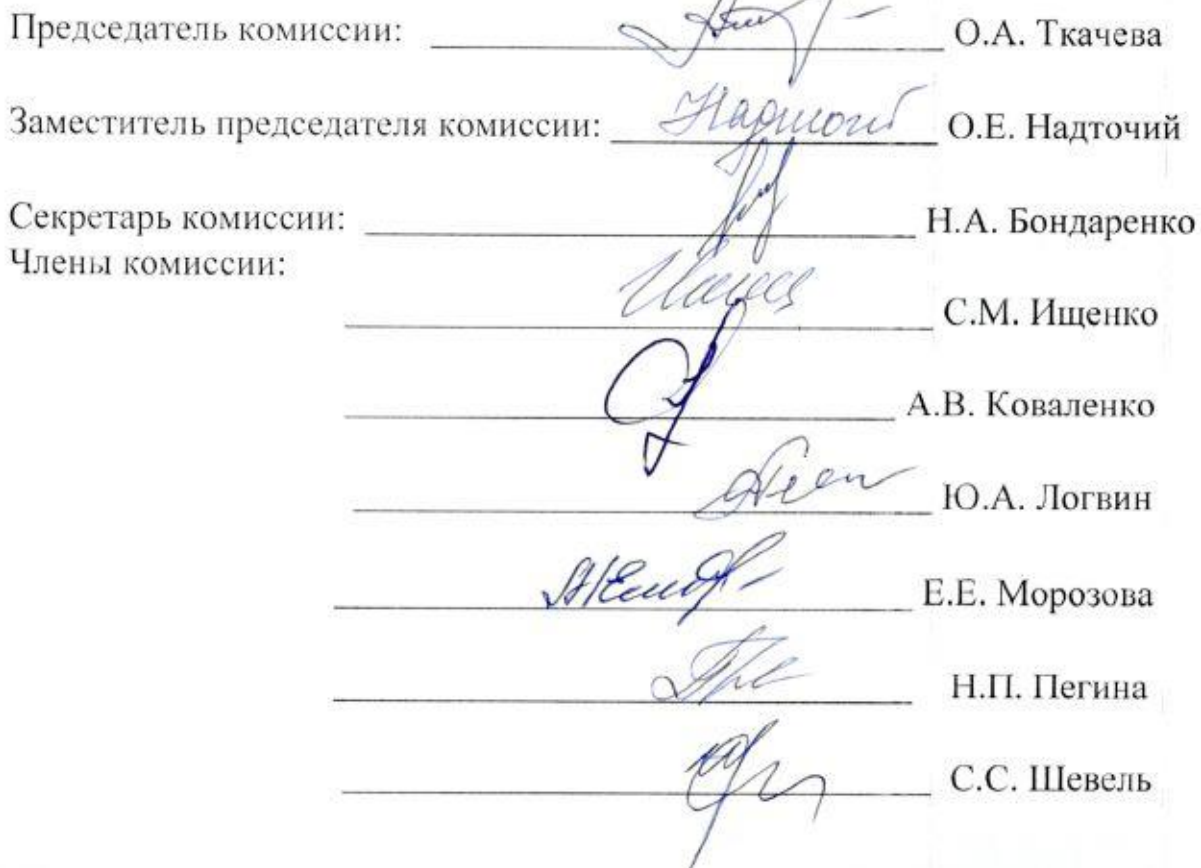 Председатель комиссии: О.А. Ткачева
Заместитель председателя комиссии: О.Е. Надточий
Секретарь комиссии: Н.А. Бондаренко
Члены комиссии:
С.М. Ищенко
А.В. Коваленко
Ю.А. Логвин
Е.Е. Морозова
Н.П. Пегина
С.С. Шевель